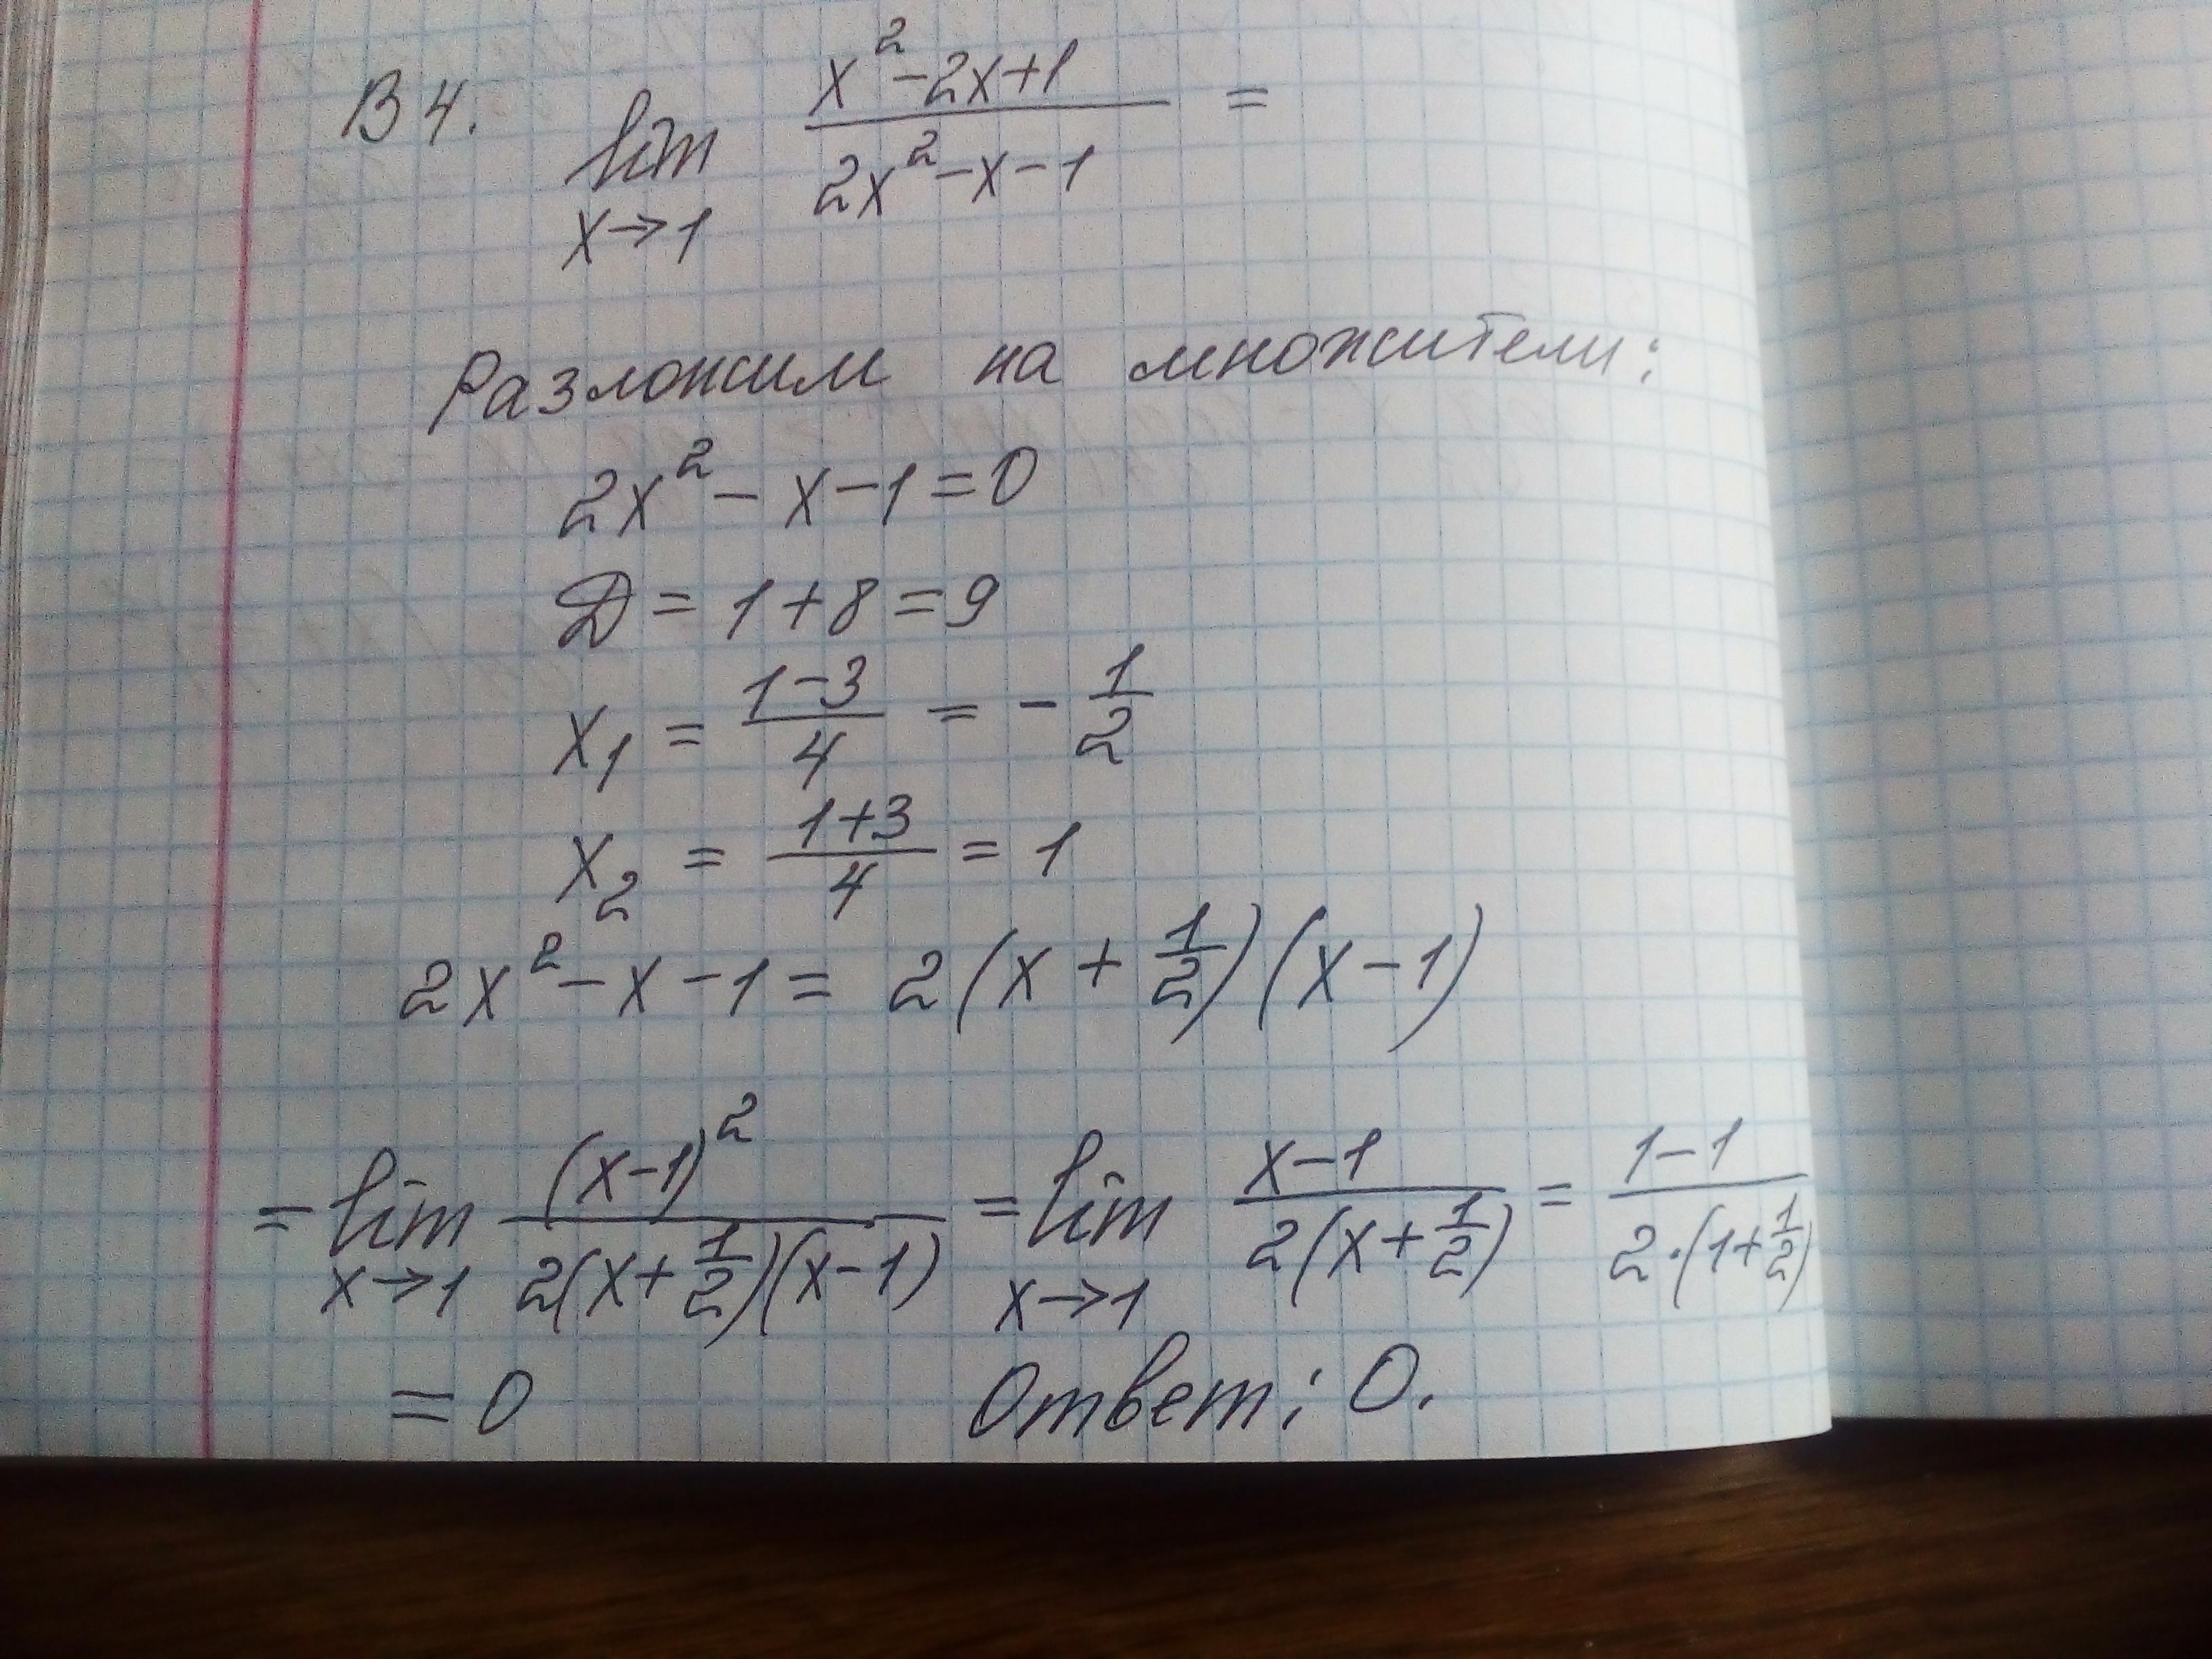 В 4. lim x→1 (x²-2x+1)/(2x²-x-1) =
Разложим на множители:
2x²-x-1=0
Д=1+8=9
x₁ = (1-3)/4 = -1/2
x₂ = (1+3)/4 = 1
2x²-x-1= 2(x+1/2)(x-1)
= lim x→1 (x-1)²/(2(x+1/2)(x-1)) = lim x→1 (x-1)/(2(x+1/2)) = (1-1)/(2·(1+1/2))
=0 Ответ: 0.